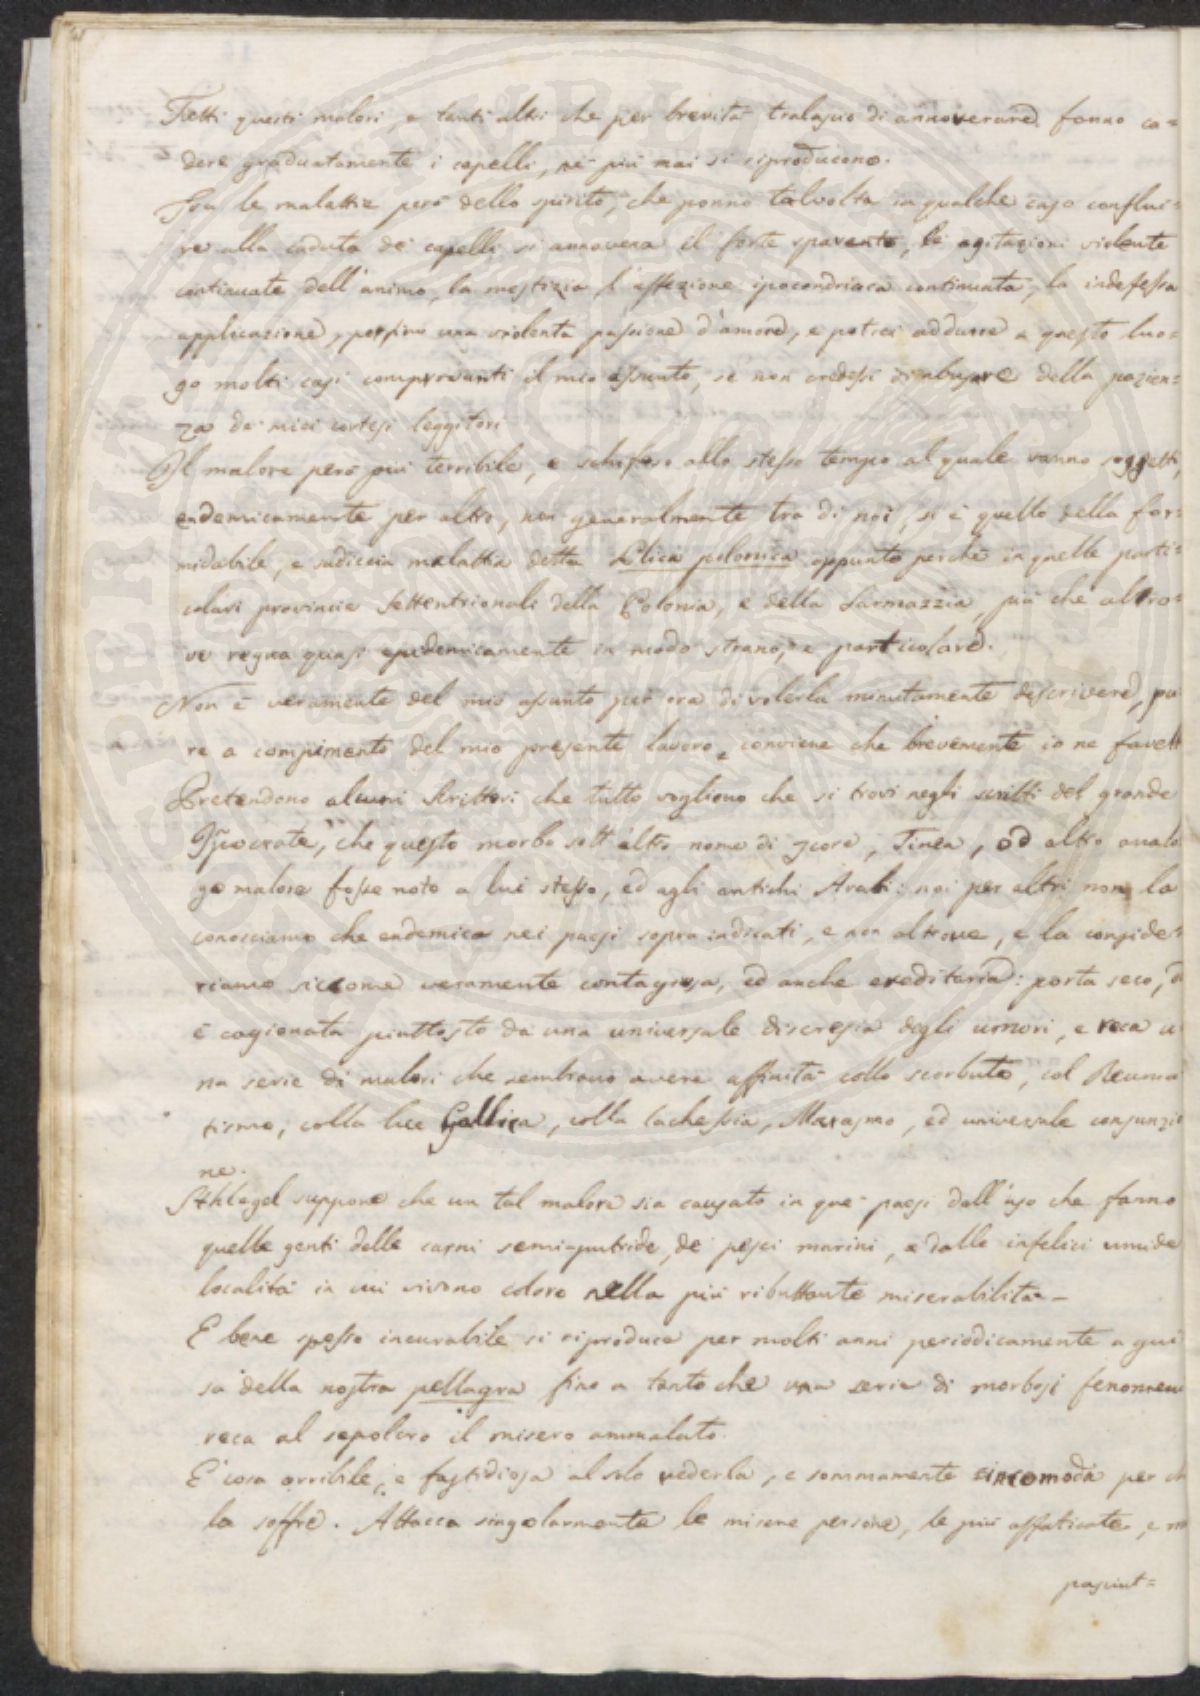 Tutti questi malori, e tanti altri che per brevità tralascio di annoverare fanno ca=
dere graduatamente i capelli, nè più mai si riproducono.
Fra le malattie però dello spirito, che ponno talvolta in qualche caso conflui=
re alla caduta de' capelli si annovera il forte spavento, le agitazioni violente
continuate dell'animo, la mestizia, l'affezione ipocondriaca continuata, la indefessa
applicazione, perfino una violenta passione d'amore, e potrei addurre a questo luo=
go molti casi comprovanti il mio assunto, se non credessi di abusare della pazien=
za de' miei cortesi leggitori
Il malore però più terribile, e schifoso allo stesso tempo al quale vanno soggetti,
endemicamente per altro, non generalmente tra di noi, si è quello della for=
midabile, e sudiccia malattia detta Plica polonica appunto perchè in quelle parti=
colari provincie Settentrionali della Polonia, e della Sarmazzia, più che altro=
ve regna quasi epidemicamente in modo strano, e particolare.
Non è veramente del mio assunto per ora di volerla minutamente descrivere, pu
re a compimento del mio presente lavoro, conviene che brevemente io ne favell
Pretendono alcuni Scrittori che tutto vogliono che si trovi negli scritti del grande
Ippocrate, che questo morbo sott'altro nome di Icore, Tinea, od altro analo
go malore fosse noto a lui stesso, ed agli antichi Arabi: noi per altri non la
conosciamo che endemica nei paesi sopra indicati, e non altrove, e la conside=
riamo siccome veramente contagiosa, ed anche ereditaria: porta seco, o
è cagionata piuttosto da una universale discresia degli umori, e reca u
na serie di malori che sembrano avere affinità collo scorbuto, col Reuma
tismo, colla lue Gallica, colla Cachessia, Marasmo, ed universale consunzio
ne.
Schlegel suppone che un tal malore sia causato in que' paesi dall'uso che fanno
quelle genti delle carni semi-putride, de' pesci marini, e dalle infelici umide
località in cui vivono coloro nella più ributtante miserabilità -
E bene spesso incurabile si riproduce per molti anni periodicamente a gui
sa della nostra pellagra fino a tanto che una serie di morbosi fenomeni
reca al sepolcro il misero ammalato.
E' cosa orribile, e fastidiosa al solo vederla, e sommamente incomoda per ch
la soffre. Attacca singolarmente le misere persone, le più affaticate, e m